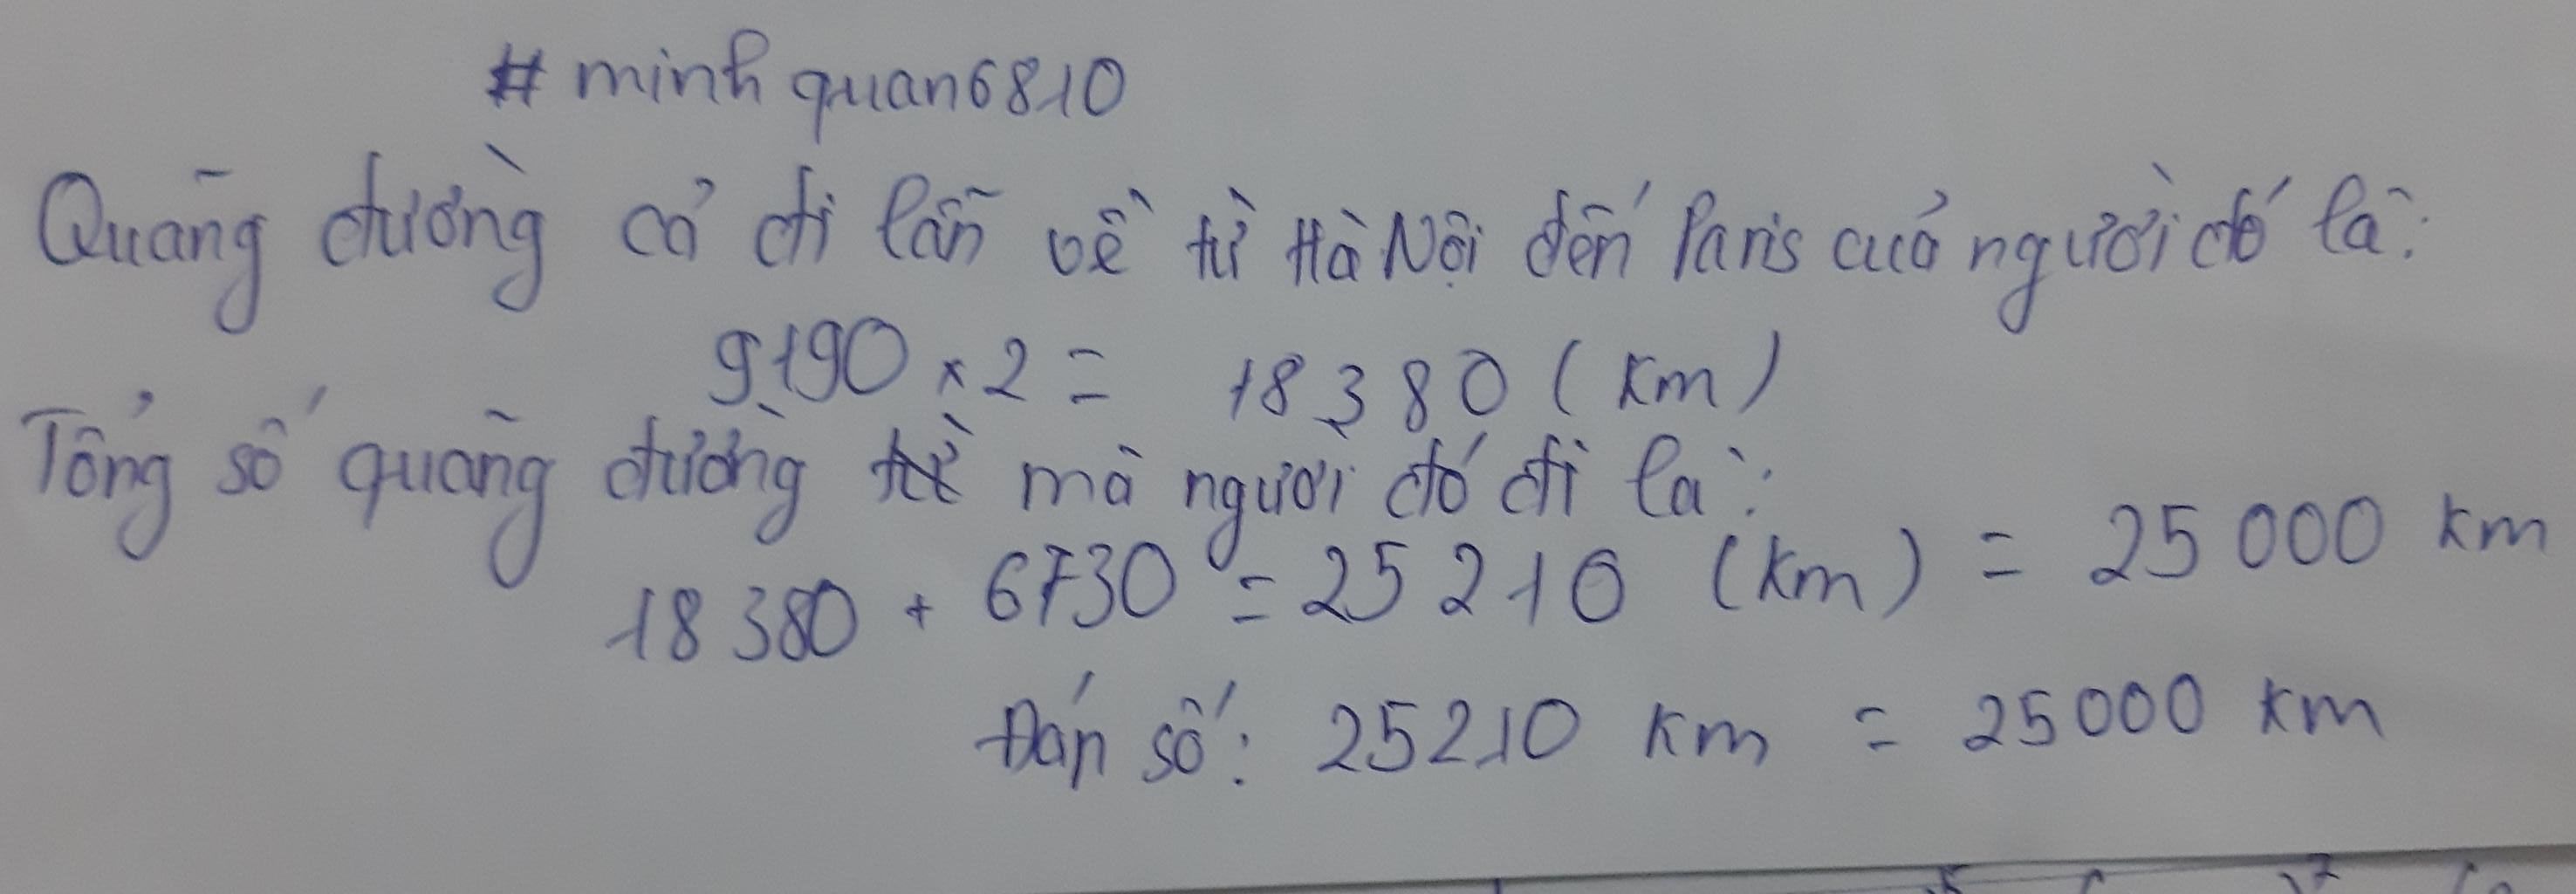 # minhquan6810
Quãng đường cả đi lẫn về từ Hà Nội đến Paris của người đó là:
9190 × 2 = 18380 (km)
Tổng số quãng đường mà người đó đi là:
18380 + 6730 = 25210 (km) = 25000 km
Đáp số: 25210 km = 25000 km